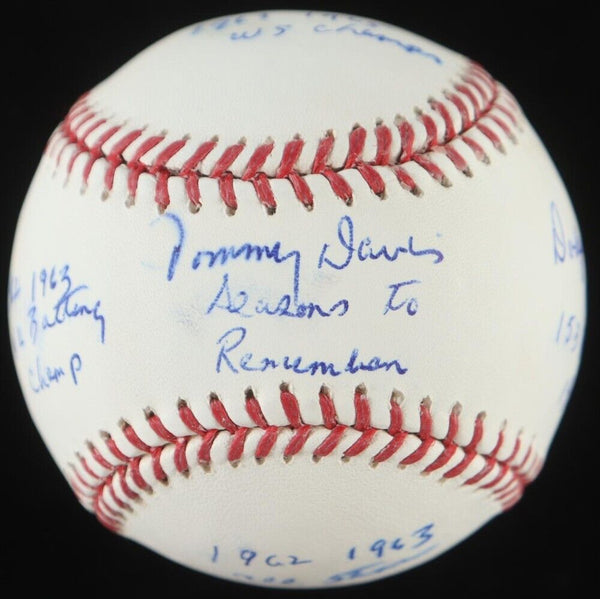 1963
WS Champs
Tommy Davis
Seasons To
Remember
1963
Batting
Champ
153
1962 1963